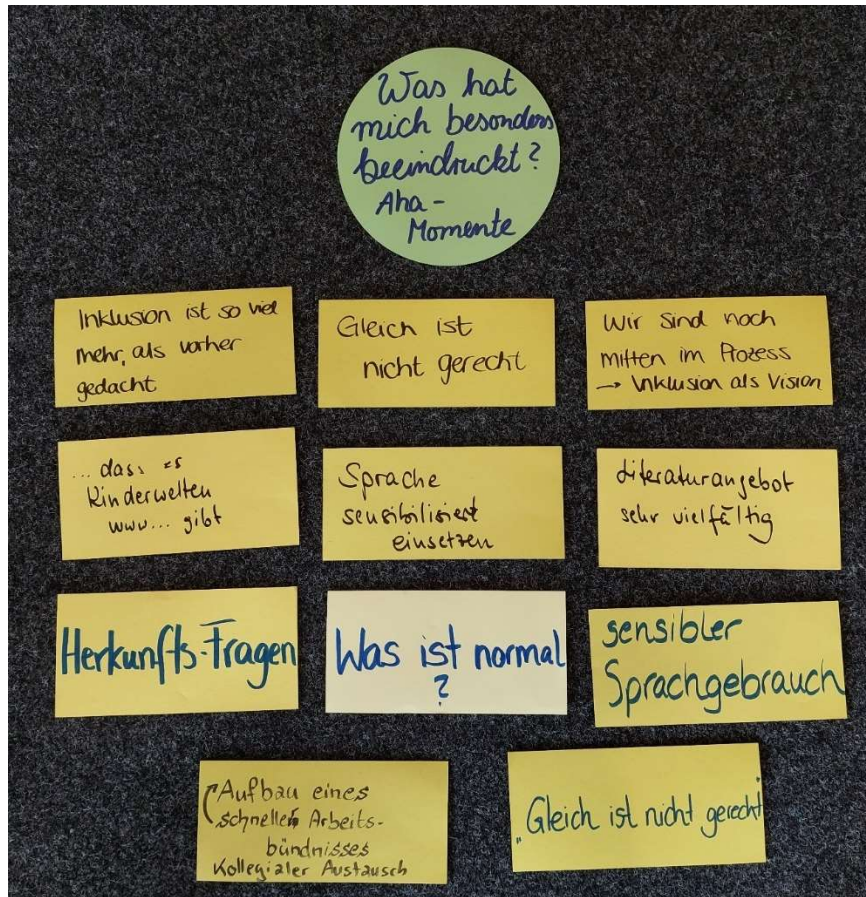 Was hat
mich besonders
beeindruckt?
Aha-
Momente
Inklusion ist so viel
mehr, als vorher
gedacht
Gleich ist
nicht gerecht
Wir sind noch
mitten im Prozess
→ Inklusion als Vision
... dass es
Kinderwelten
www... gibt
Sprache
sensibilisiert
einsetzen
Literaturangebot
sehr vielfältig
Herkunfts-Fragen
Was ist normal
?
sensibler
Sprachgebrauch
Aufbau eines
schnellen Arbeits-
bündnisses
Kollegialer Austausch
„Gleich ist nicht gerecht"